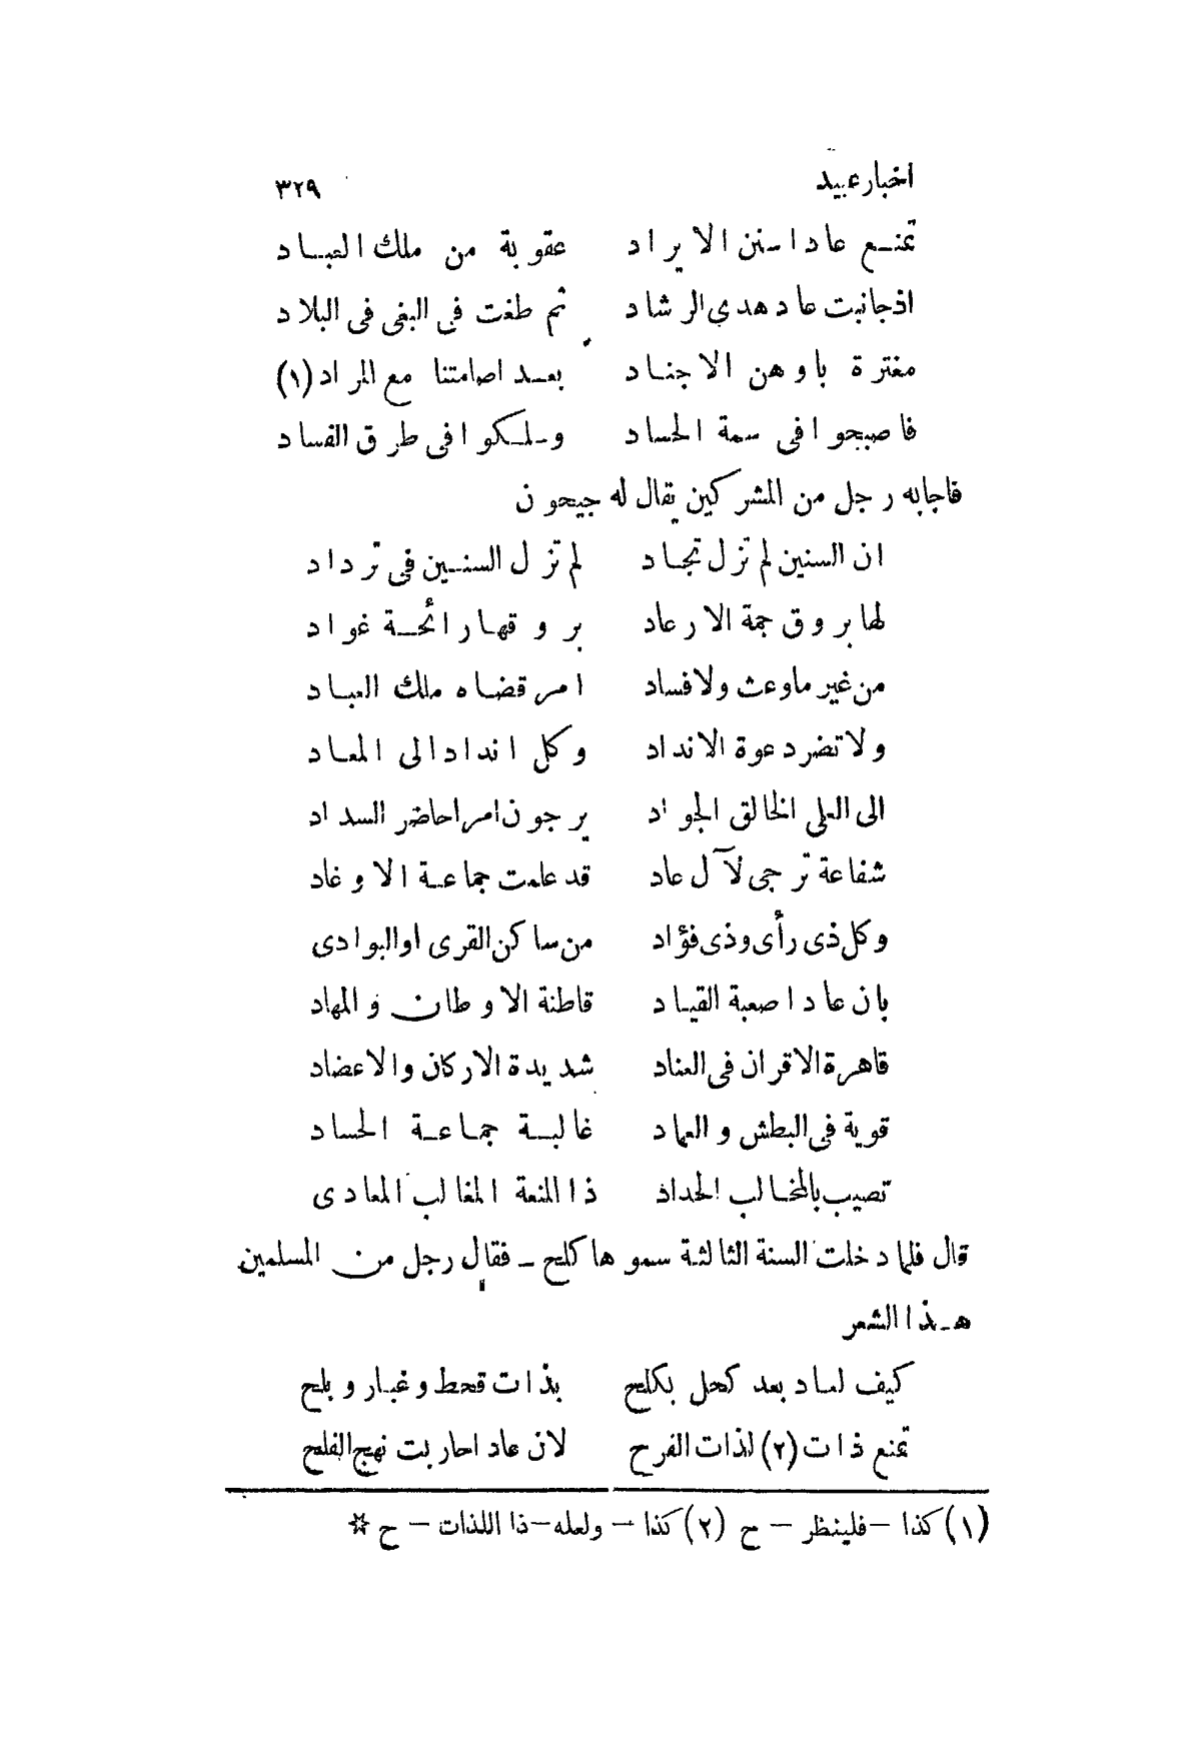 اخبار عبيد ٣٢٩
تمنع عادا سنن الايراد عقوبة من ملك العباد
اذجانبت عاد هدى الرشاد ثم طغت فى البغى فى البلاد
مغترة باوهن الاجناد بعد اصامتنا مع المراد (١)
فاصبحوا فى سمة الحساد وسلكوا فى طرق الفساد
فاجابه رجل من المشركين يقال له جيحون
ان السنين لم تزل تجاد لم تزل السنين فى ترداد
لها بروق جمة الارعاد بروقها رائحة غواد
من غير ماوعث ولافساد امر قضاه ملك العباد
ولاتضر دعوة الانداد وكل انداد الى المعاد
الى العلى الخالق الجواد يرجون امرا حاضر السداد
شفاعة ترجى لآل عاد قد علمت جماعة الاوغاد
وكل ذى رأى وذى فؤاد من ساكن القرى او البوادى
بان عادا صعبة القياد قاطنة الاوطان والمهاد
قاهرة الاقران فى العناد شديدة الاركان والاعضاد
قوية فى البطش والعماد غالبة جماعة الحساد
تصيب بالمخالب الحداد ذا المنعة المغالب المعادى
قال فلما دخلت السنة الثالثة سموها كلح ـ فقال رجل من المسلمين
هذا الشعر
كيف لعاد بعد كحل بكلح بذات قحط وغبار وبلح
تمنع ذات (٢) لذات الفرح لان عاد احاربت نهج الفلح
(١) كذا – فلينظر – ح (٢) كذا – ولعله – ذا اللذات – ح *